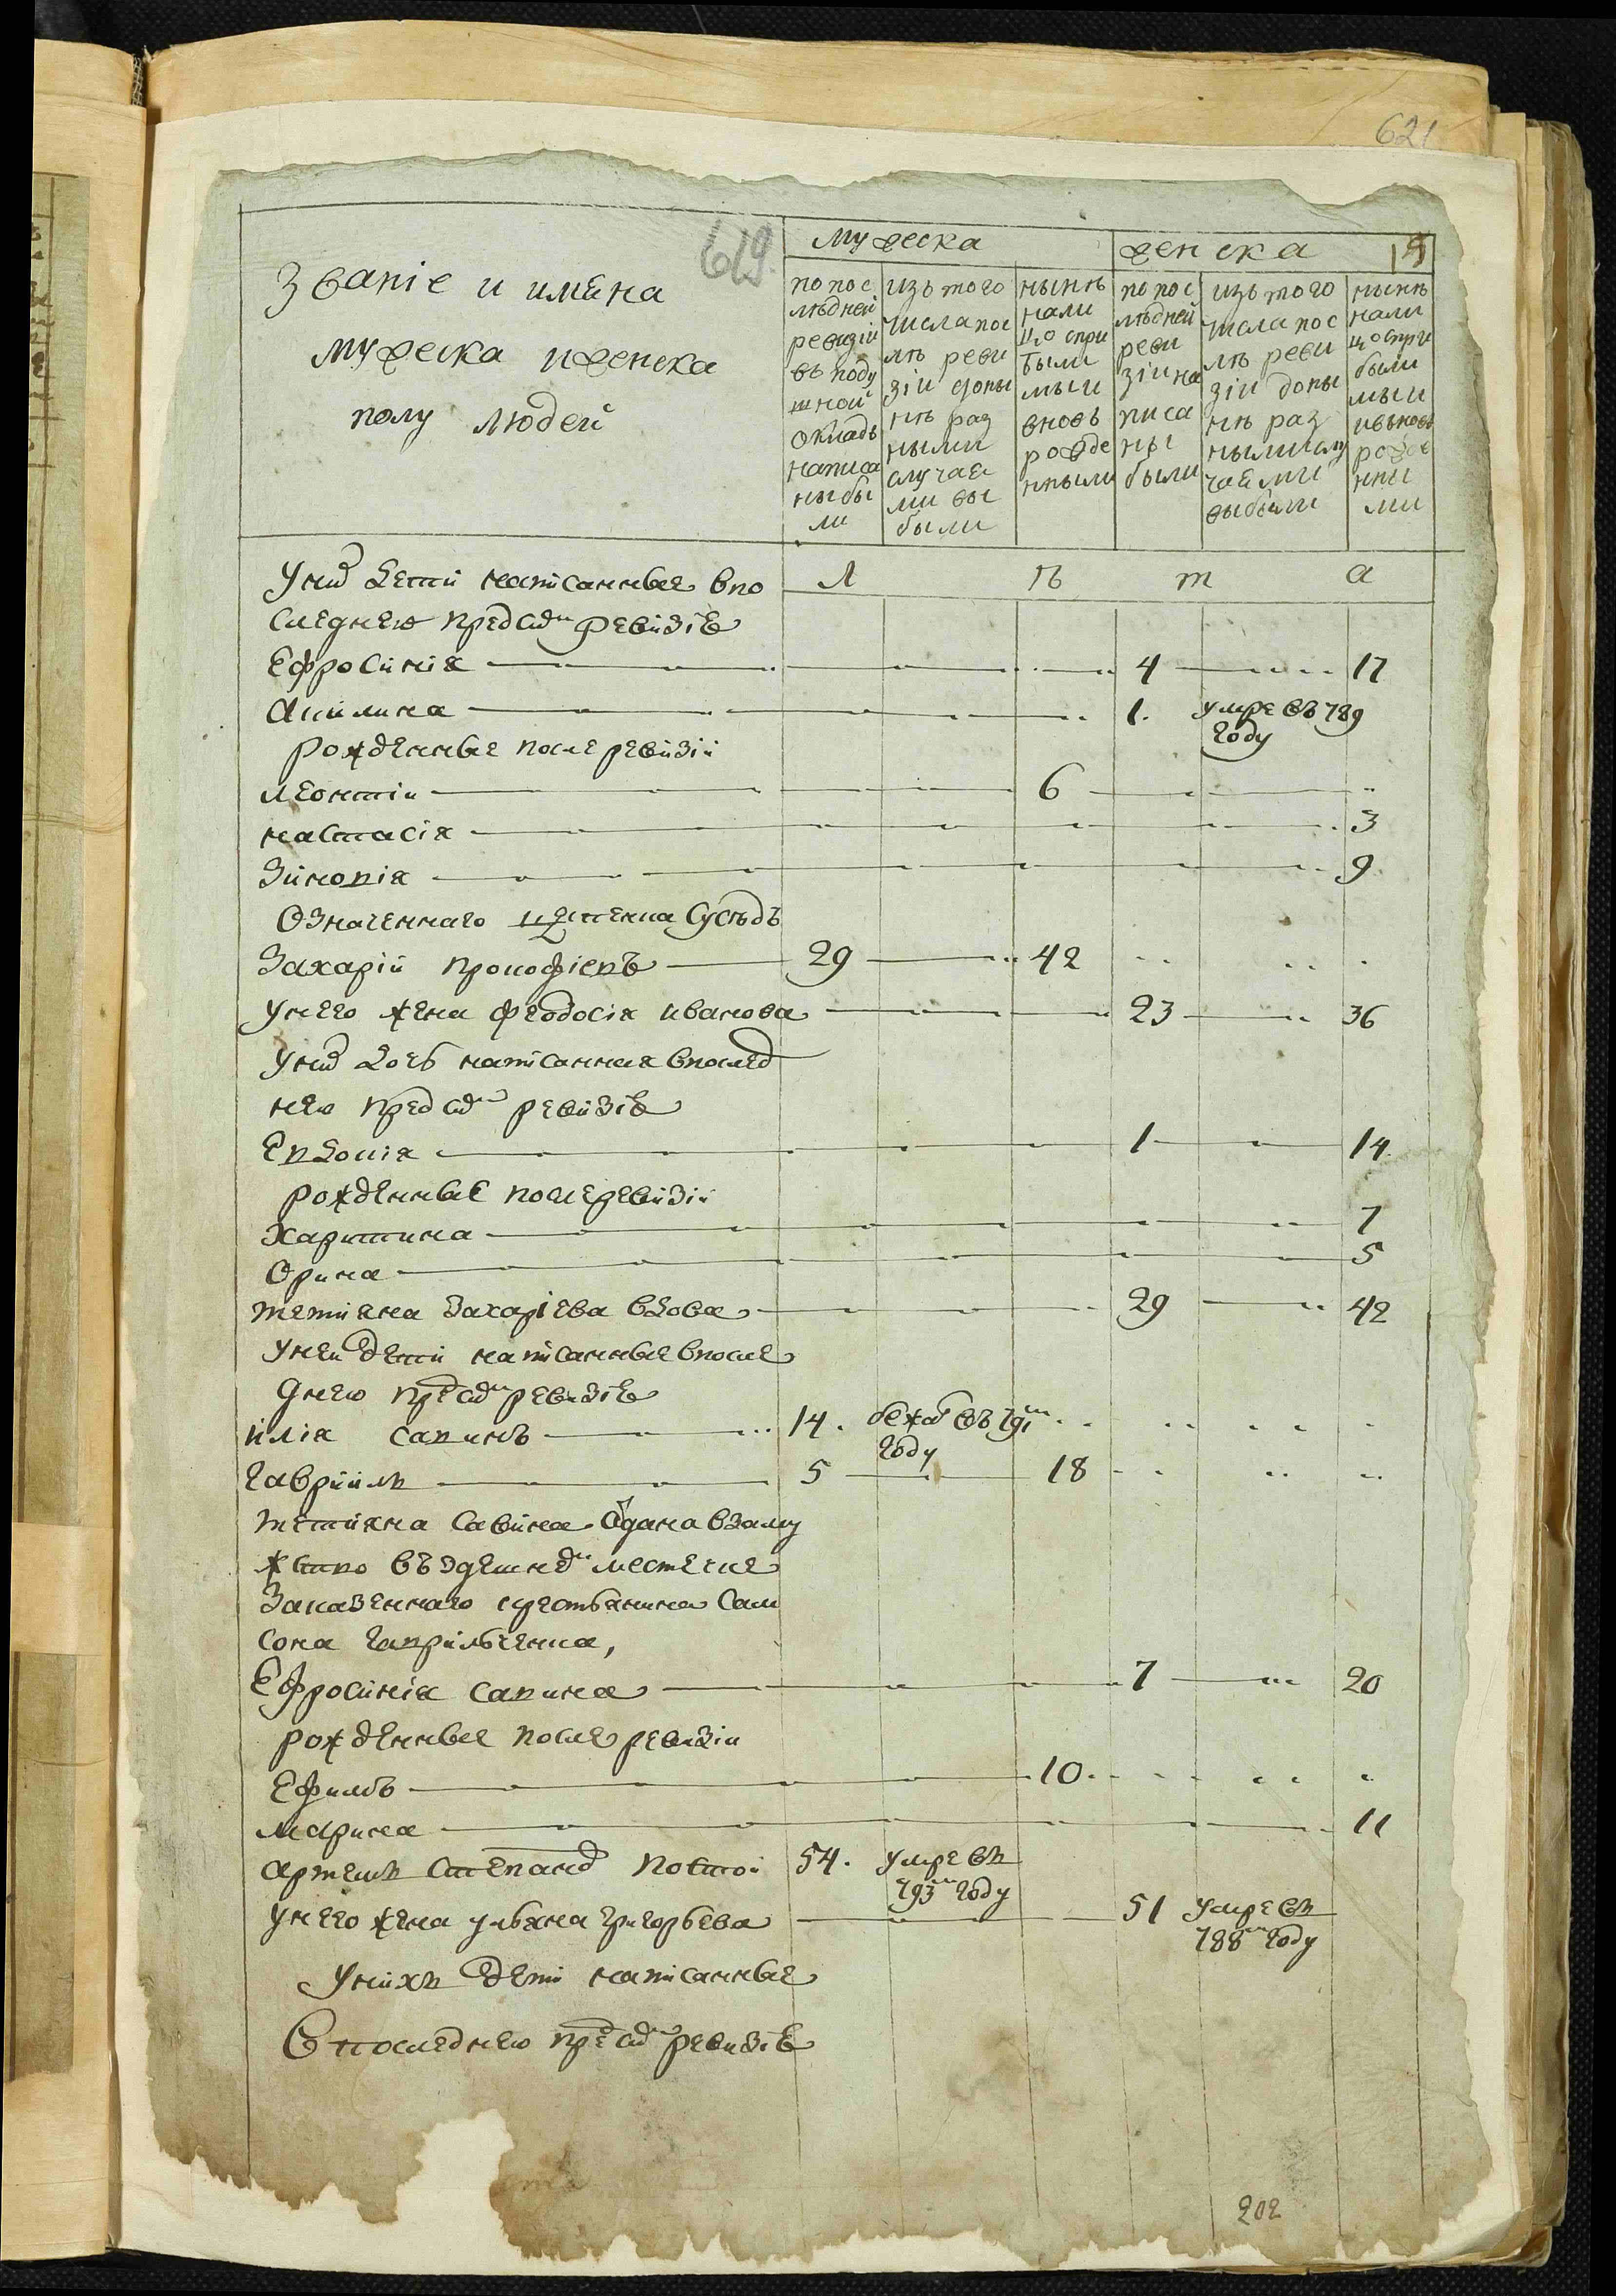 621
619.
15
Званіе и имена
мужеска и женска
полу людей
мужеска
женска
попос
лѣдней
ревизіи
въ поду
шной
окладъ
написа
ны бы
ли
изъ того
числа пос
лѣ реви
зіи доны
нѣ раз
ными
случая
ми вы
были
нынѣ
нали
цо спри
были
мы и
вновь
рожде
нными
по пос
лѣдней
реви
зіи на
писа
ны
были
изъ того
числа пос
лѣ реви
зіи доны
нѣ раз
ными слу
чаями
выбыли
нынѣ
нали
цо спри
были
мы и
ивьновь
рожде
нны
ми
Л ѣ т а
Уних дети написанные впо
следнею предсим ревизіею
Ефросинія 4 17
Акилина 1. умре въ 789
году
рожденные после ревизіи
Леонтіи 6
настасія 3
Зиновія 9
Означеннаго сусѣдъ
Захарій Прокофіевъ 29 42
Унего жена Феодосія иванова 23 36
Уних дочь написанная впослед
нею предсим ревизіею
Евдокія 1 14
рожденные после ревизіи
Харитина 7
Орина 5
тетіяна Захаріева вдова 29 42
Унеи дети написанные впосле
днею предсим ревизіею
илія савинъ 14. бежал въ 791м
году
гавріилъ 5 18
тетіяна савина Одана взаму
жство въздешнем местечке
Заказеннаго крестьянина Сам
сона гаврильченка,
Ефросинія савина 7 20
рожденные после ревизіи
Ефимъ 10.
Марина 11
артемъ Степанов 54. умре въ
793м году
Унего жена ульяна григорьева 51 умре въ
788м году
Унихъ дети написанные
Впоследнею предсим ревизіею
202